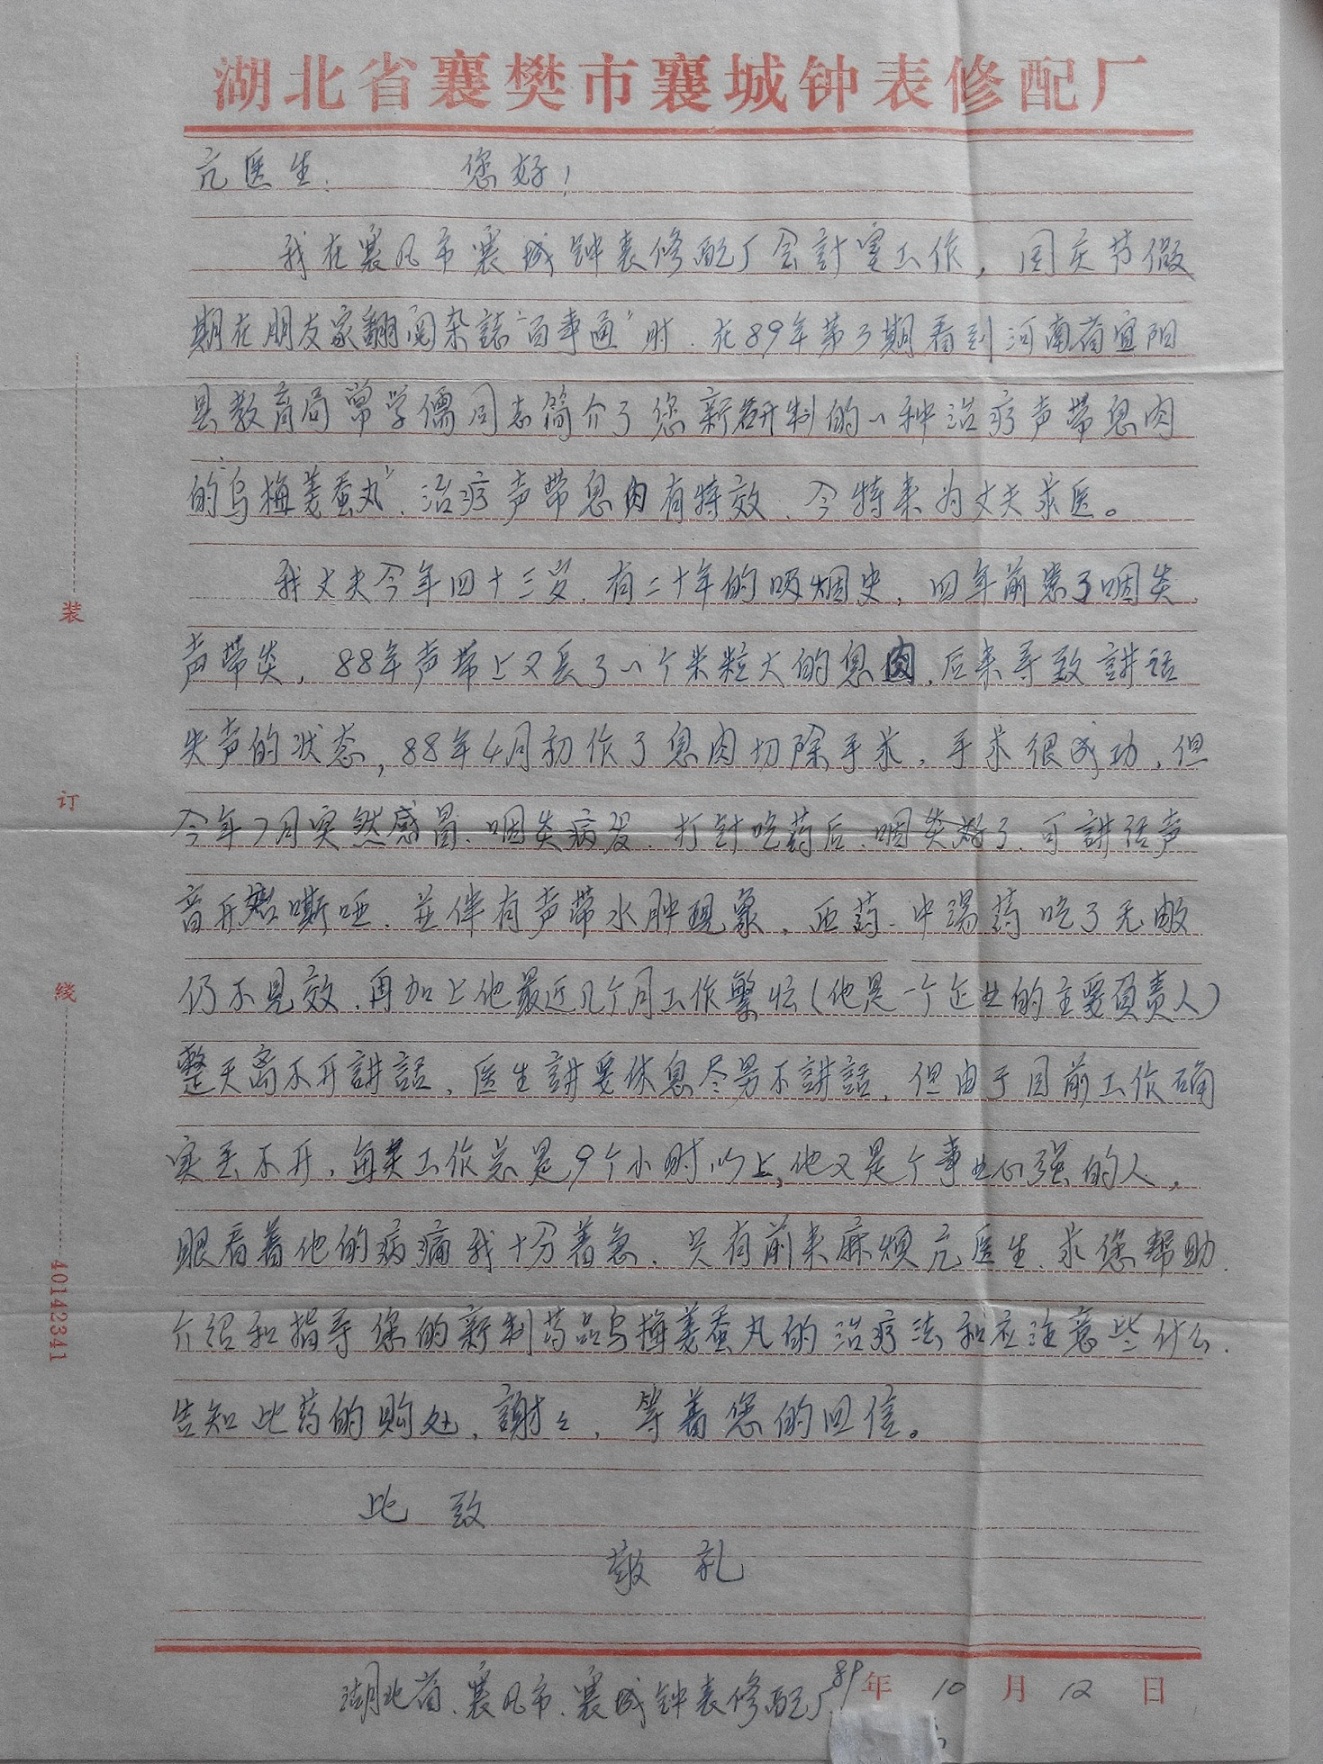 湖北省襄樊市襄城钟表修配厂
亢医生: 您好!
我在襄凡市襄城钟表修配厂会計室工作,国庆节假
期在朋友家翻阅杂誌“百事通”时.在89年第3期看到河南省宜阳
县教育局常学儒同志简介了您新研制的一种治疗声带息肉
的“乌梅姜蚕丸”.治疗声带息肉有特效.今特来为丈夫求医。
我丈夫今年四十三岁.有二十年的吸烟史,四年前患了咽炎.
声带炎,88年声带上又长了一个米粒大的息肉,后来导致講话
失声的状态,88年4月初作了息肉切除手术,手术很成功,但
今年7月突然感冒.咽炎病发.打针吃药后.咽炎好了.可講话声
音开始嘶哑.並伴有声带水肿现象,西药.中湯药吃了无数
仍不见效.再加上他最近几个月工作繁忙(他是一个企业的主要负责人)
整天离不开講話,医生講要休息尽男不講話,但由于目前工作确
实丢不开,每天工作总是9个小时以上,他又是个事业心强的人,
眼看着他的病痛我十分着急.只有前来麻烦亢医生.求您帮助.
介绍和指导您的新制药品乌梅姜蚕丸的治疗法和应注意些什么.
告知此药的购处,謝々,等着您的回信。
此 致
敬 礼
湖北省.襄凡市.襄城钟表修配厂 89年 10 月 12 日
装
订
綫
401423441